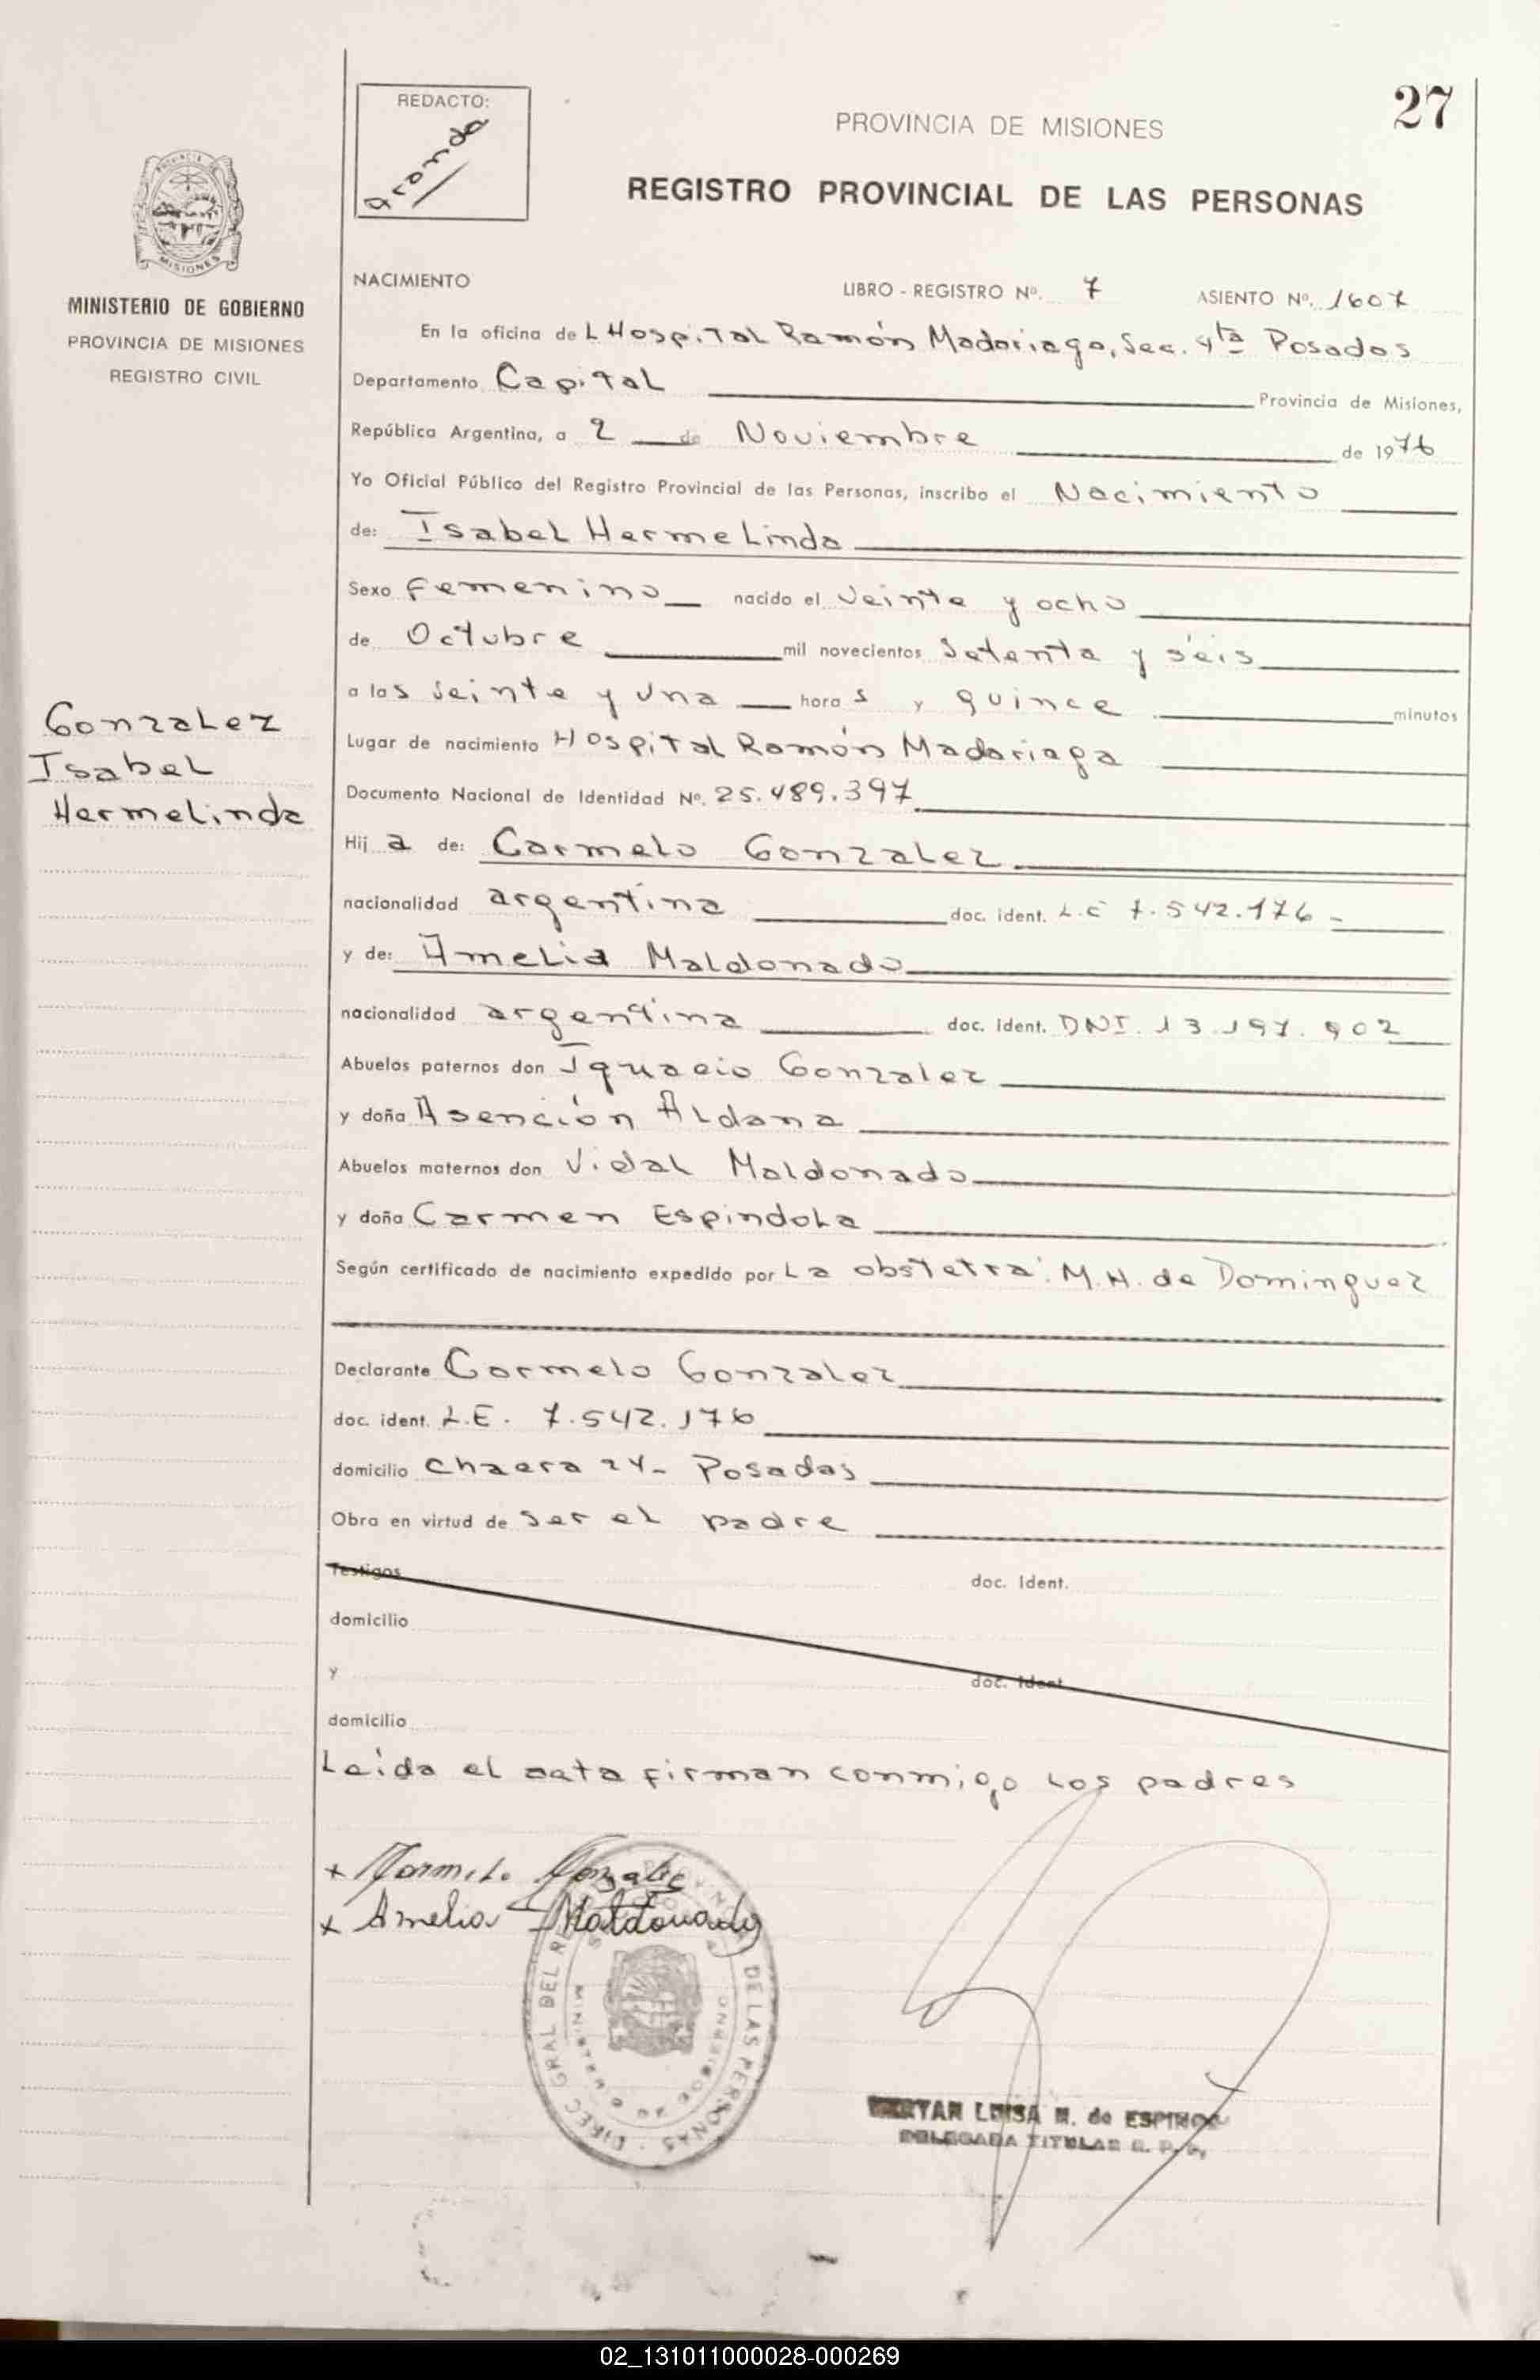 REDACTO:
Aranda
27
PROVINCIA DE MISIONES
REGISTRO PROVINCIAL DE LAS PERSONAS
MISIONES
MINISTERIO DE GOBIERNO
PROVINCIA DE MISIONES
REGISTRO CIVIL
NACIMIENTO LIBRO - REGISTRO Nº. 7 ASIENTO Nº. 1607
En la oficina de L Hospital Ramón Madariaga, Sec. 4ta Posadas
Departamento Capital Provincia de Misiones,
República Argentina, a 2 de Noviembre de 1976
Yo Oficial Público del Registro Provincial de las Personas, inscribo el Nacimiento
de: Isabel Hermelinda
Sexo femenino nacido el veinte y ocho
de Octubre mil novecientos setenta y séis
a las veinte y una horas y quince minutos
Gonzalez
Isabel
Hermelinda
Lugar de nacimiento Hospital Ramón Madariaga
Documento Nacional de Identidad Nº. 25.489.397
Hija de: Carmelo Gonzalez
nacionalidad argentina doc. ident. L.E 7.542.176
y de: Amelia Maldonado
nacionalidad argentina doc. ident. DNI. 13.197.902
Abuelos paternos don Ignacio Gonzalez
y doña Asención Aldana
Abuelos maternos don Vidal Maldonado
y doña Carmen Espindola
Según certificado de nacimiento expedido por La obstetra: M.H. de Dominguez
Declarante Carmelo Gonzalez
doc. ident. L.E. 7.542.176
domicilio Chacra 24- Posadas
Obra en virtud de ser el padre
Testigos doc. ident.
domicilio
y doc. ident.
domicilio
Leída el acta firman conmigo los padres
x Karmelo Gonzalez
x Amelia Maldonado
DIREC GRAL DEL DE LAS PERSONAS
LUISA M. de ESPINOZA
DELEGADA TITULAR R. P. P.
02_131011000028-000269